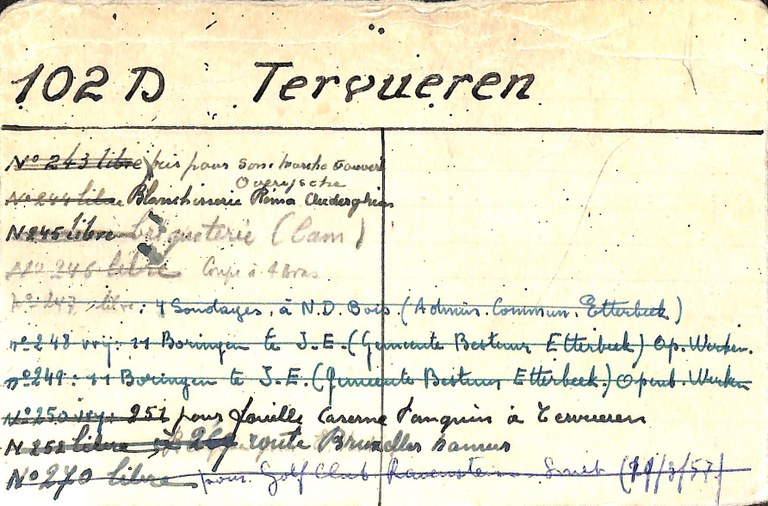 102 D Tervueren
N° 243 libre pris pour Sons Marche Couvert
Overijsche
N° 244 libre Blanchisserie Rema Auderghem
N° 245 libre briqueterie (Cam)
N° 246 libre Coupe à 4 Bras
N° 247 libre : 4 Sondages, à N.D. Bois (Admin. Commun. Etterbeek)
n° 248 vrij : 11 Boringen te J.E. (Gemeente Bestuur Etterbeek) Op. Werken.
n° 249 : 11 Boringen te J.E. (Gemeente Bestuur Etterbeek) Openb. Werken
N° 250 vrij 251 pour fouille Caserne Panquin à Tervueren
N 252 libre 269 route Bruxelles Namur
N° 270 libre pour Golf Club Ravenstein Smet (19/3/57)